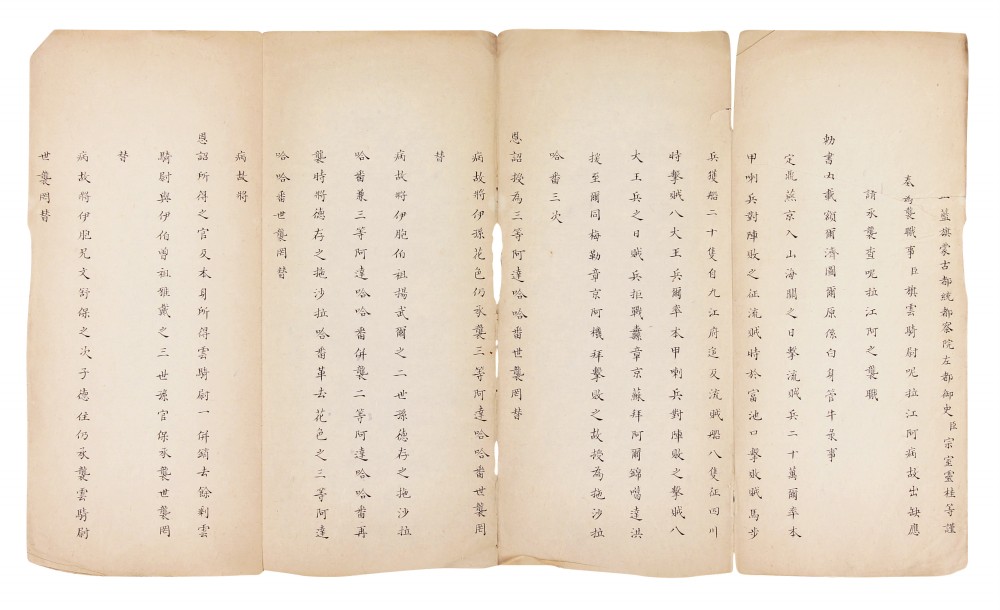 一藍旗蒙古都統都察院左都御史臣宗室靈桂等謹
奏為襲職事臣旗雲騎尉呢拉江阿病故出缺應
請承襲查呢拉江阿之襲職
勅書內載額爾濟圖爾原係白身管牛彔事
定鼎燕京入山海關之日擊流賊兵二十萬爾率本
甲喇兵對陣敗之征流賊時於富池口擊敗賊馬步
兵獲船二十隻自九江府追及流賊船八隻征四川
時擊賊八大王兵爾率本甲喇兵對陣敗之擊賊八
大王兵之日賊兵拒戰纛章京蘇拜阿爾錦噶達渾
援至爾同梅勒章京阿機拜擊敗之故授為拖沙拉
哈番三次
恩詔授為三等阿達哈哈番世襲罔替
病故將伊孫花色仍承襲三等阿達哈哈番世襲罔
替
病故將伊胞伯祖揚武爾之二世孫德存之拖沙拉
哈番兼三等阿達哈哈番併襲二等阿達哈哈番再
襲時將德存之拖沙拉哈番革去花色之三等阿達
哈哈番世襲罔替
病故將
恩詔所得之官及本身所得雲騎尉一併銷去餘剩雲
騎尉與伊伯曾祖雅戴之三世孫官保承襲世襲罔
替
病故將伊胞兄文舒保之次子德住仍承襲雲騎尉
世襲罔替